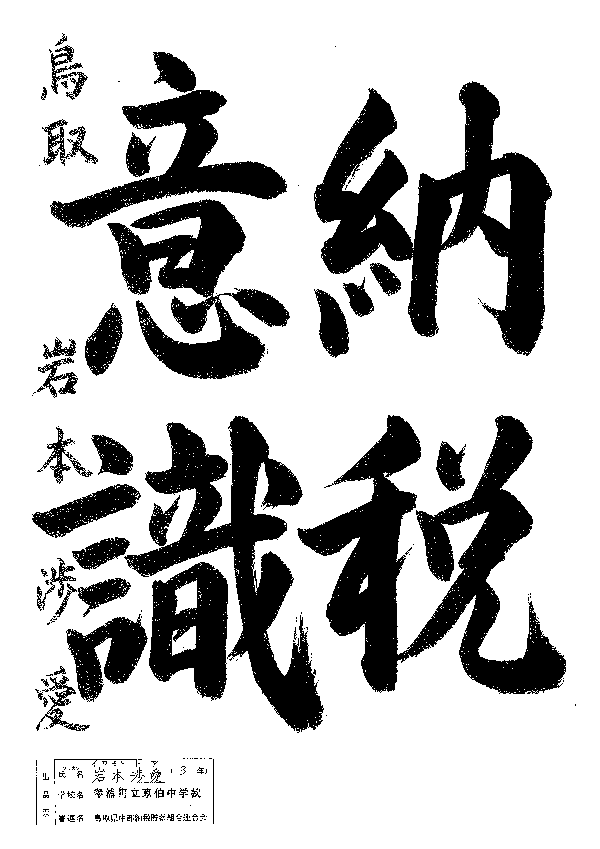 納税
意識
鳥取 岩本渉愛
出品票
氏名 岩本渉愛 (3年)
学校名 琴浦町立東伯中学校
署連名 鳥取県中部納税貯蓄組合連合会